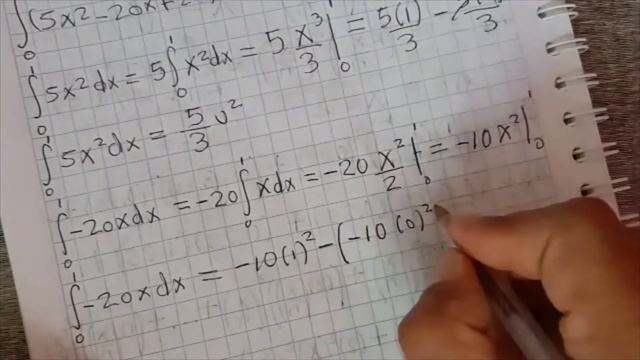 ∫₀¹ (5x² - 20x +
∫₀¹ 5x² dx = 5 ∫₀¹ x² dx = 5 x³/3 |₀¹ = 5(1)/3 -
∫₀¹ 5x² dx = 5/3 u²
∫₀¹ -20x dx = -20 ∫₀¹ x dx = -20 x²/2 |₀¹ = -10x² |₀¹
∫₀¹ -20x dx = -10(1)² - (-10(0)²